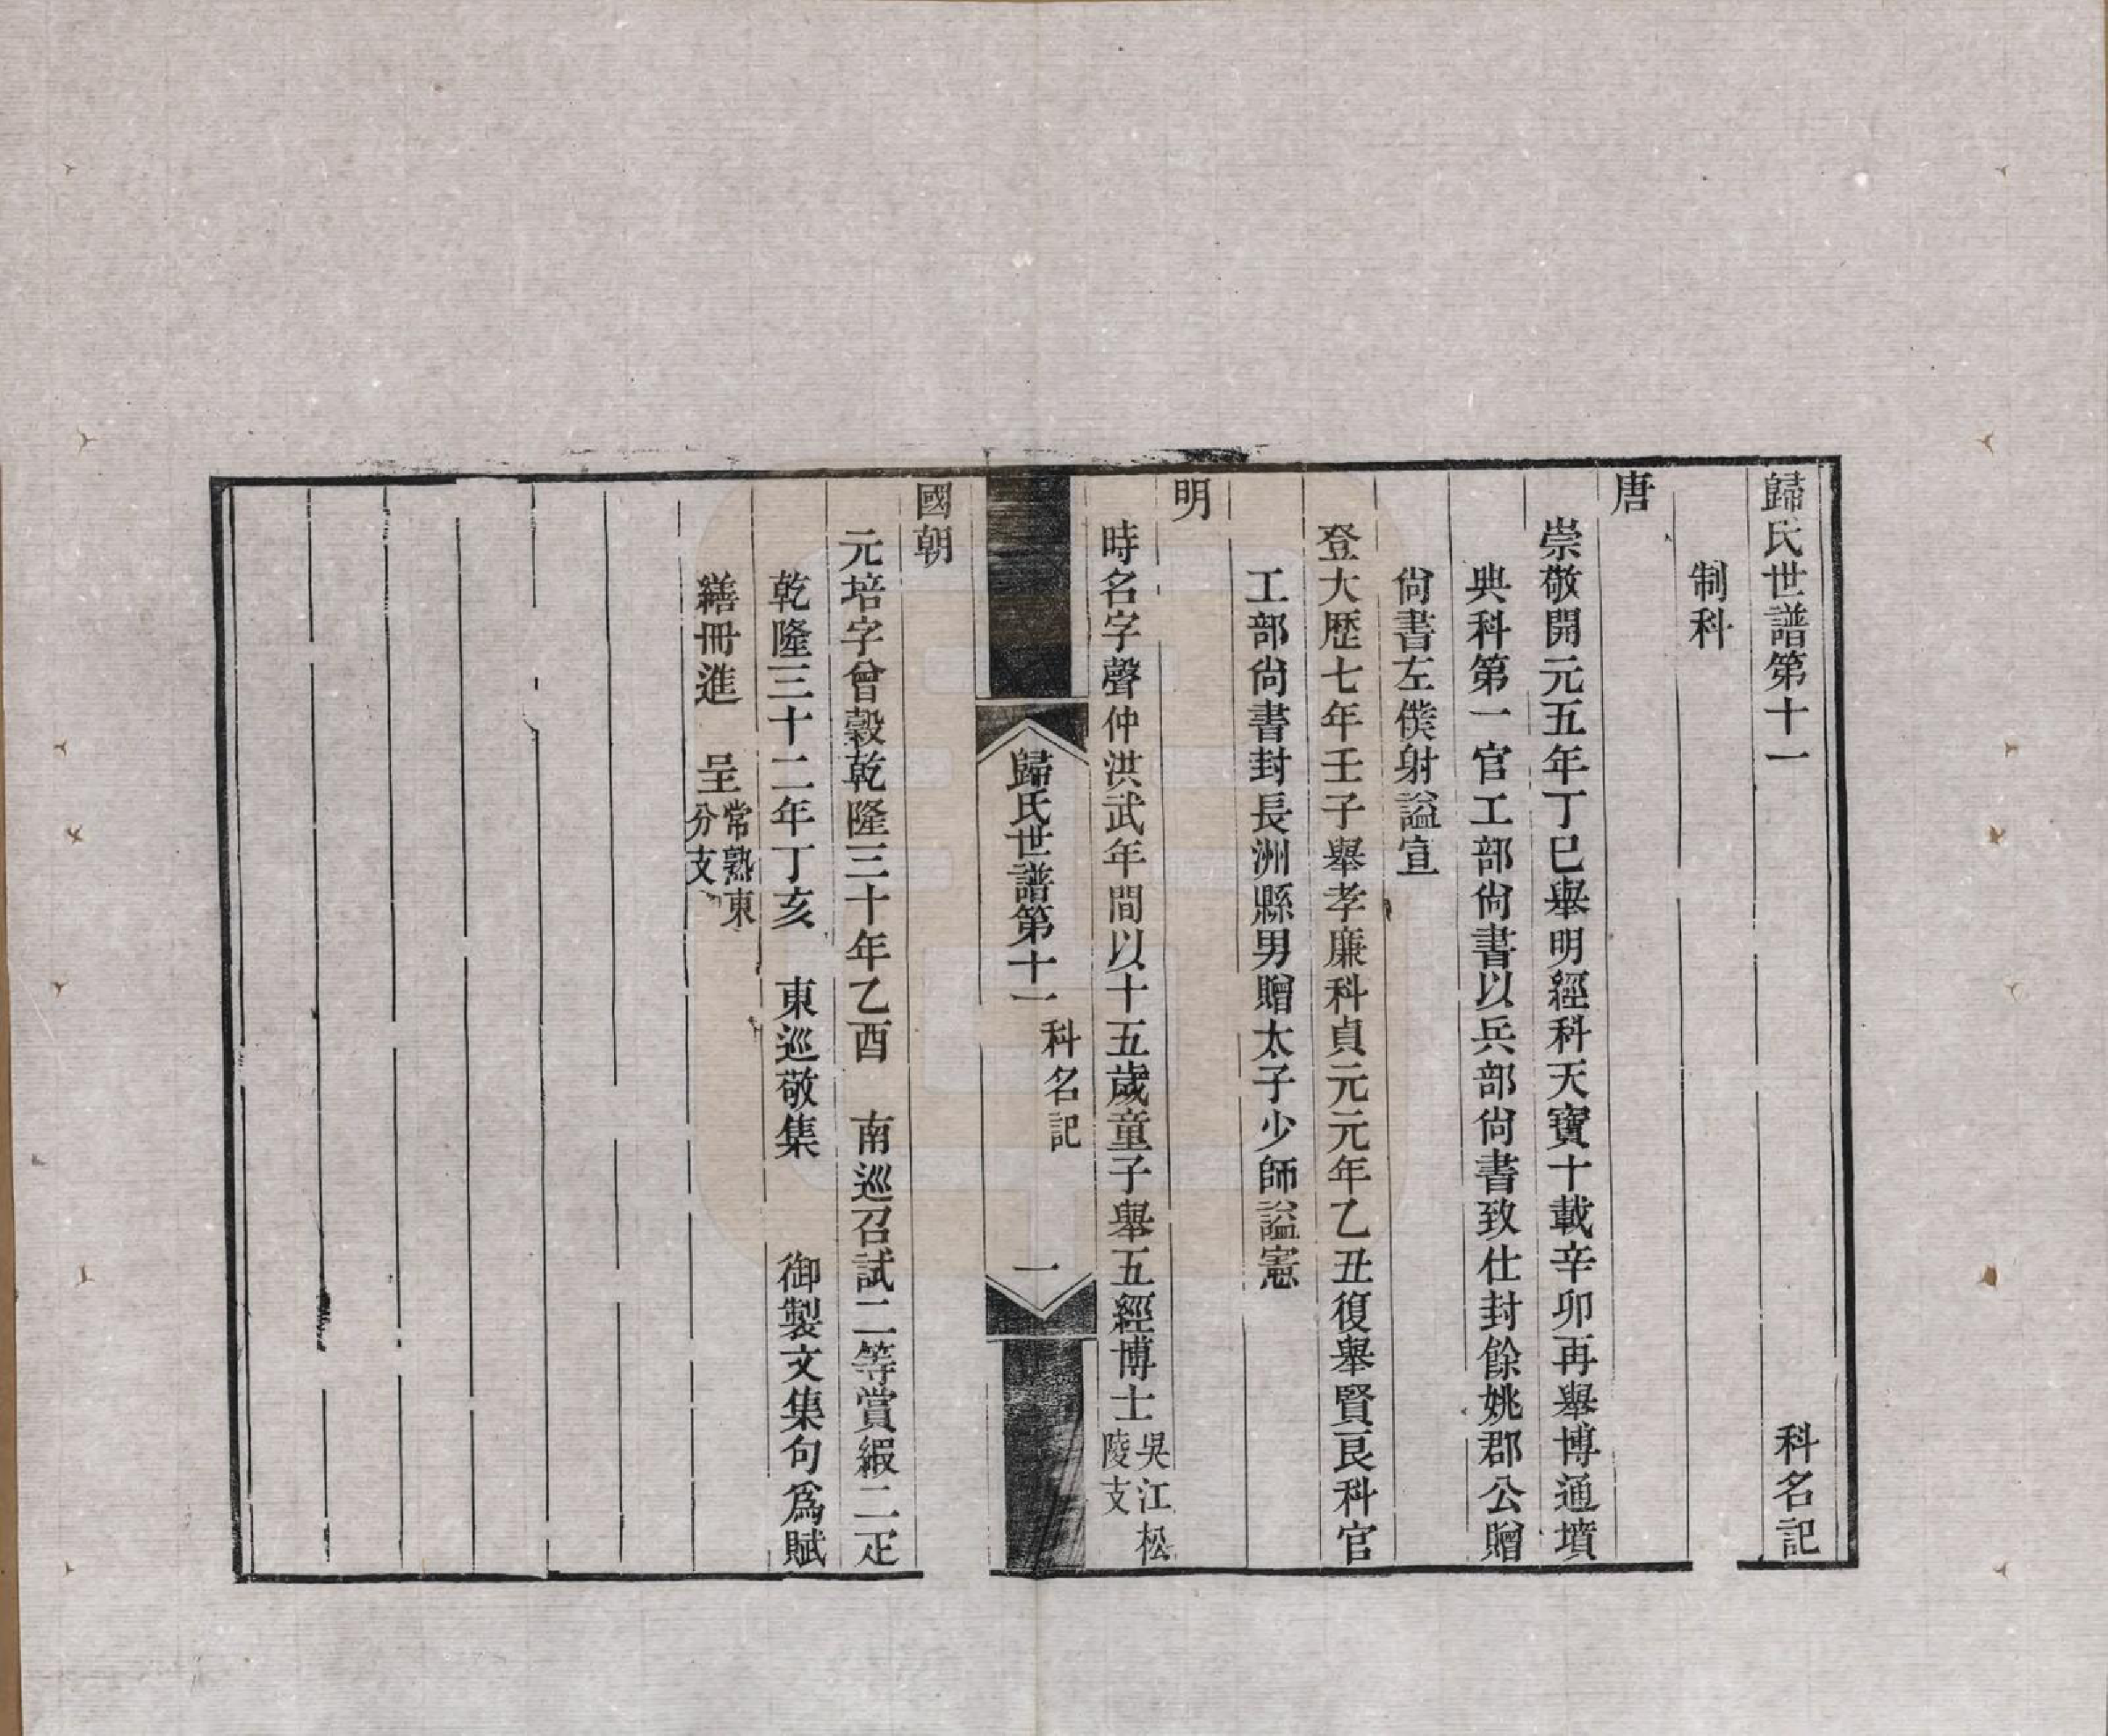 歸氏世譜第十一　科名記
制科
唐
崇敬開元五年丁巳舉明經科天寶十載辛卯再舉博通墳
典科第一官工部尙書以兵部尙書致仕封餘姚郡公贈
尙書左僕射謚宣
登大歷七年壬子舉孝廉科貞元元年乙丑復舉賢良科官
工部尙書封長洲縣男贈太子少師謚憲
明
時名字聲仲洪武年間以十五歲童子舉五經博士吳江松陵支
歸氏世譜第十一　科名記　一
國朝
元培字曾穀乾隆三十年乙酉　南巡召試二等賞緞二疋
乾隆三十二年丁亥　東巡敬集　御製文集句爲賦
繕冊進　呈常熟東分支